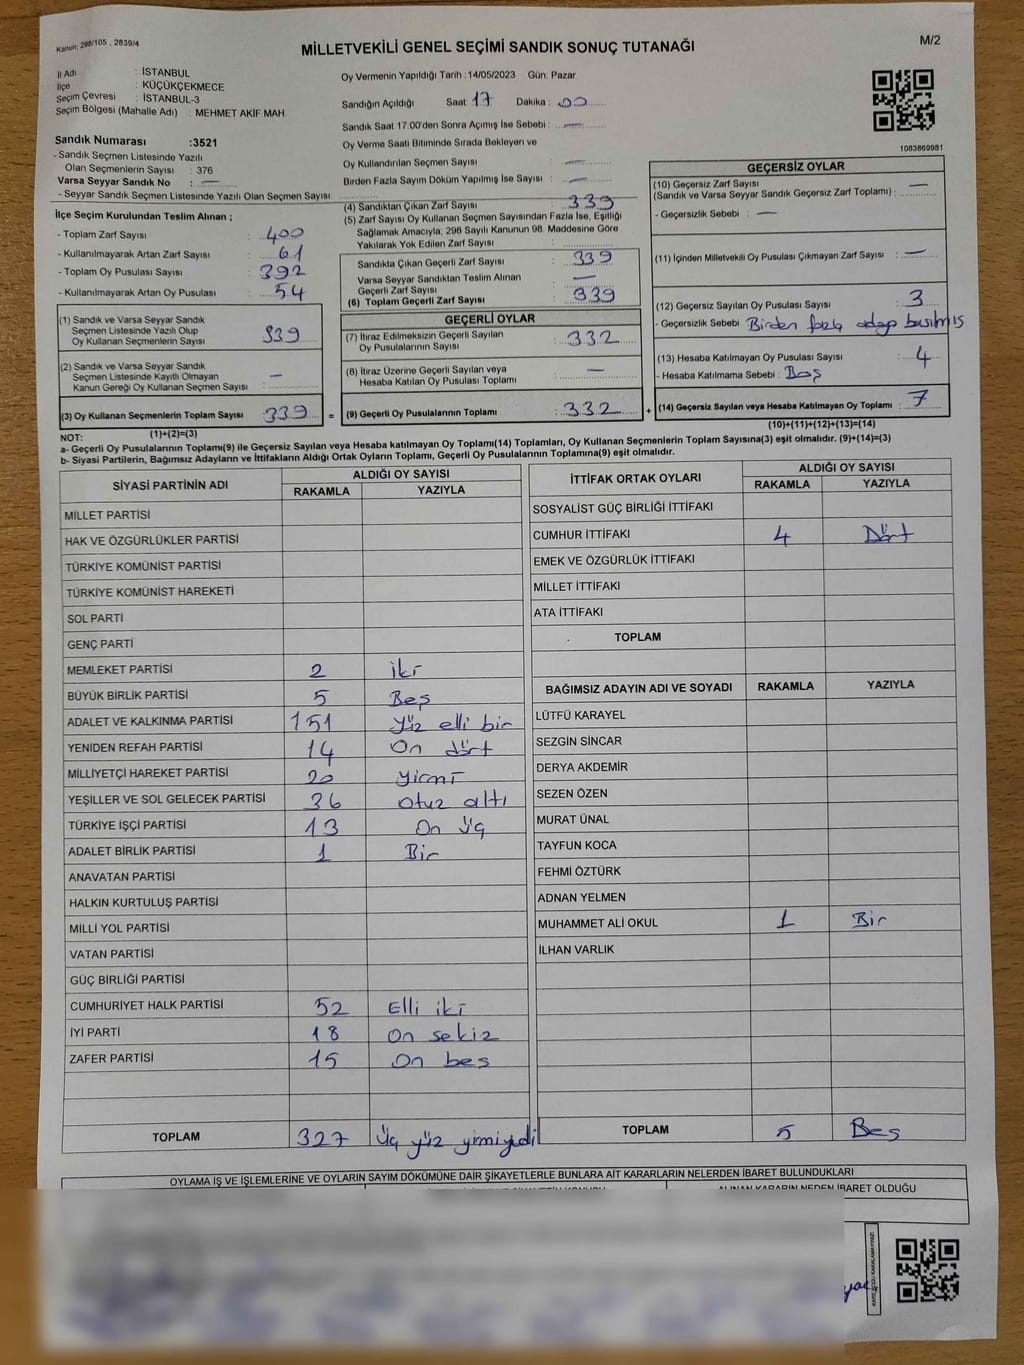 Kanun: 298/105 , 2839/4
MİLLETVEKİLİ GENEL SEÇİMİ SANDIK SONUÇ TUTANAĞI
M/2
İl Adı : İSTANBUL
İlçe : KÜÇÜKÇEKMECE
Seçim Çevresi : İSTANBUL-3
Seçim Bölgesi (Mahalle Adı) : MEHMET AKİF MAH
Oy Vermenin Yapıldığı Tarih :14/05/2023 Gün: Pazar
Sandığın Açıldığı Saat: 17 Dakika : 00
Sandık Saat 17.00'den Sonra Açımış İse Sebebi : —
Oy Verme Saati Bitiminde Sırada Bekleyen ve
Oy Kullandırılan Seçmen Sayısı : —
Birden Fazla Sayım Döküm Yapılmış İse Sayısı : —
1083869981
Sandık Numarası :3521
- Sandık Seçmen Listesinde Yazılı
Olan Seçmenlerin Sayısı : 376
Varsa Seyyar Sandık No : —
- Seyyar Sandık Seçmen Listesinde Yazılı Olan Seçmen Sayısı
İlçe Seçim Kurulundan Teslim Alınan ;
- Toplam Zarf Sayısı : 400
- Kullanılmayarak Artan Zarf Sayısı : 61
- Toplam Oy Pusulası Sayısı : 392
- Kullanılmayarak Artan Oy Pusulası : 54
(1) Sandık ve Varsa Seyyar Sandık
Seçmen Listesinde Yazılı Olup
Oy Kullanan Seçmenlerin Sayısı : 339
(2) Sandık ve Varsa Seyyar Sandık
Seçmen Listesinde Kayıtlı Olmayan
Kanun Gereği Oy Kullanan Seçmen Sayısı : —
(3) Oy Kullanan Seçmenlerin Toplam Sayısı : 339 =
(1)+(2)=(3)
(4) Sandıktan Çıkan Zarf Sayısı : 339
(5) Zarf Sayısı Oy Kullanan Seçmen Sayısından Fazla İse, Eşitliği
Sağlamak Amacıyla; 298 Sayılı Kanunun 98. Maddesine Göre
Yakılarak Yok Edilen Zarf Sayısı :
Sandıkta Çıkan Geçerli Zarf Sayısı : 339
Varsa Seyyar Sandıktan Teslim Alınan
Geçerli Zarf Sayısı : —
(6) Toplam Geçerli Zarf Sayısı : 339
GEÇERLİ OYLAR
(7) İtiraz Edilmeksizin Geçerli Sayılan
Oy Pusulalarının Sayısı : 332
(8) İtiraz Üzerine Geçerli Sayılan veya
Hesaba Katılan Oy Pusulası Toplamı : —
(9) Geçerli Oy Pusulalarının Toplamı : 332 +
GEÇERSİZ OYLAR
(10) Geçersiz Zarf Sayısı
(Sandık ve Varsa Seyyar Sandık Geçersiz Zarf Toplamı) : —
- Geçersizlik Sebebi : —
(11) İçinden Milletvekili Oy Pusulası Çıkmayan Zarf Sayısı : —
(12) Geçersiz Sayılan Oy Pusulası Sayısı : 3
- Geçersizlik Sebebi : Birden fazla adaya basılmış
(13) Hesaba Katılmayan Oy Pusulası Sayısı : 4
- Hesaba Katılmama Sebebi : Boş
(14) Geçersiz Sayılan veya Hesaba Katılmayan Oy Toplamı : 7
(10)+(11)+(12)+(13)=(14)
NOT:
a- Geçerli Oy Pusulalarının Toplamı(9) ile Geçersiz Sayılan veya Hesaba katılmayan Oy Toplamı(14) Toplamları, Oy Kullanan Seçmenlerin Toplam Sayısına(3) eşit olmalıdır. (9)+(14)=(3)
b- Siyasi Partilerin, Bağımsız Adayların ve İttifakların Aldığı Ortak Oyların Toplamı, Geçerli Oy Pusulalarının Toplamına(9) eşit olmalıdır.
SİYASİ PARTİNİN ADI
ALDIĞI OY SAYISI
RAKAMLA YAZIYLA
MİLLET PARTİSİ
HAK VE ÖZGÜRLÜKLER PARTİSİ
TÜRKİYE KOMÜNİST PARTİSİ
TÜRKİYE KOMÜNİST HAREKETİ
SOL PARTİ
GENÇ PARTİ
MEMLEKET PARTİSİ 2 iki
BÜYÜK BİRLİK PARTİSİ 5 Beş
ADALET VE KALKINMA PARTİSİ 151 Yüz elli bir
YENİDEN REFAH PARTİSİ 14 On dört
MİLLİYETÇİ HAREKET PARTİSİ 20 yirmi
YEŞİLLER VE SOL GELECEK PARTİSİ 36 otuz altı
TÜRKİYE İŞÇİ PARTİSİ 13 On üç
ADALET BİRLİK PARTİSİ 1 Bir
ANAVATAN PARTİSİ
HALKIN KURTULUŞ PARTİSİ
MİLLİ YOL PARTİSİ
VATAN PARTİSİ
GÜÇ BİRLİĞİ PARTİSİ
CUMHURİYET HALK PARTİSİ 52 Elli iki
İYİ PARTİ 18 On sekiz
ZAFER PARTİSİ 15 On beş
TOPLAM 327 Üç yüz yirmiyedi
İTTİFAK ORTAK OYLARI
ALDIĞI OY SAYISI
RAKAMLA YAZIYLA
SOSYALİST GÜÇ BİRLİĞİ İTTİFAKI
CUMHUR İTTİFAKI 4 Dört
EMEK VE ÖZGÜRLÜK İTTİFAKI
MİLLET İTTİFAKI
ATA İTTİFAKI
TOPLAM
BAĞIMSIZ ADAYIN ADI VE SOYADI RAKAMLA YAZIYLA
LÜTFÜ KARAYEL
SEZGİN SİNCAR
DERYA AKDEMİR
SEZEN ÖZEN
MURAT ÜNAL
TAYFUN KOCA
FEHMİ ÖZTÜRK
ADNAN YELMEN
MUHAMMET ALİ OKUL 1 Bir
İLHAN VARLIK
TOPLAM 5 Beş
OYLAMA İŞ VE İŞLEMLERİNE VE OYLARIN SAYIM DÖKÜMÜNE DAİR ŞİKAYETLERLE BUNLARA AİT KARARLARIN NELERDEN İBARET BULUNDUKLARI
ALINAN KARARIN NEDEN İBARET OLDUĞU